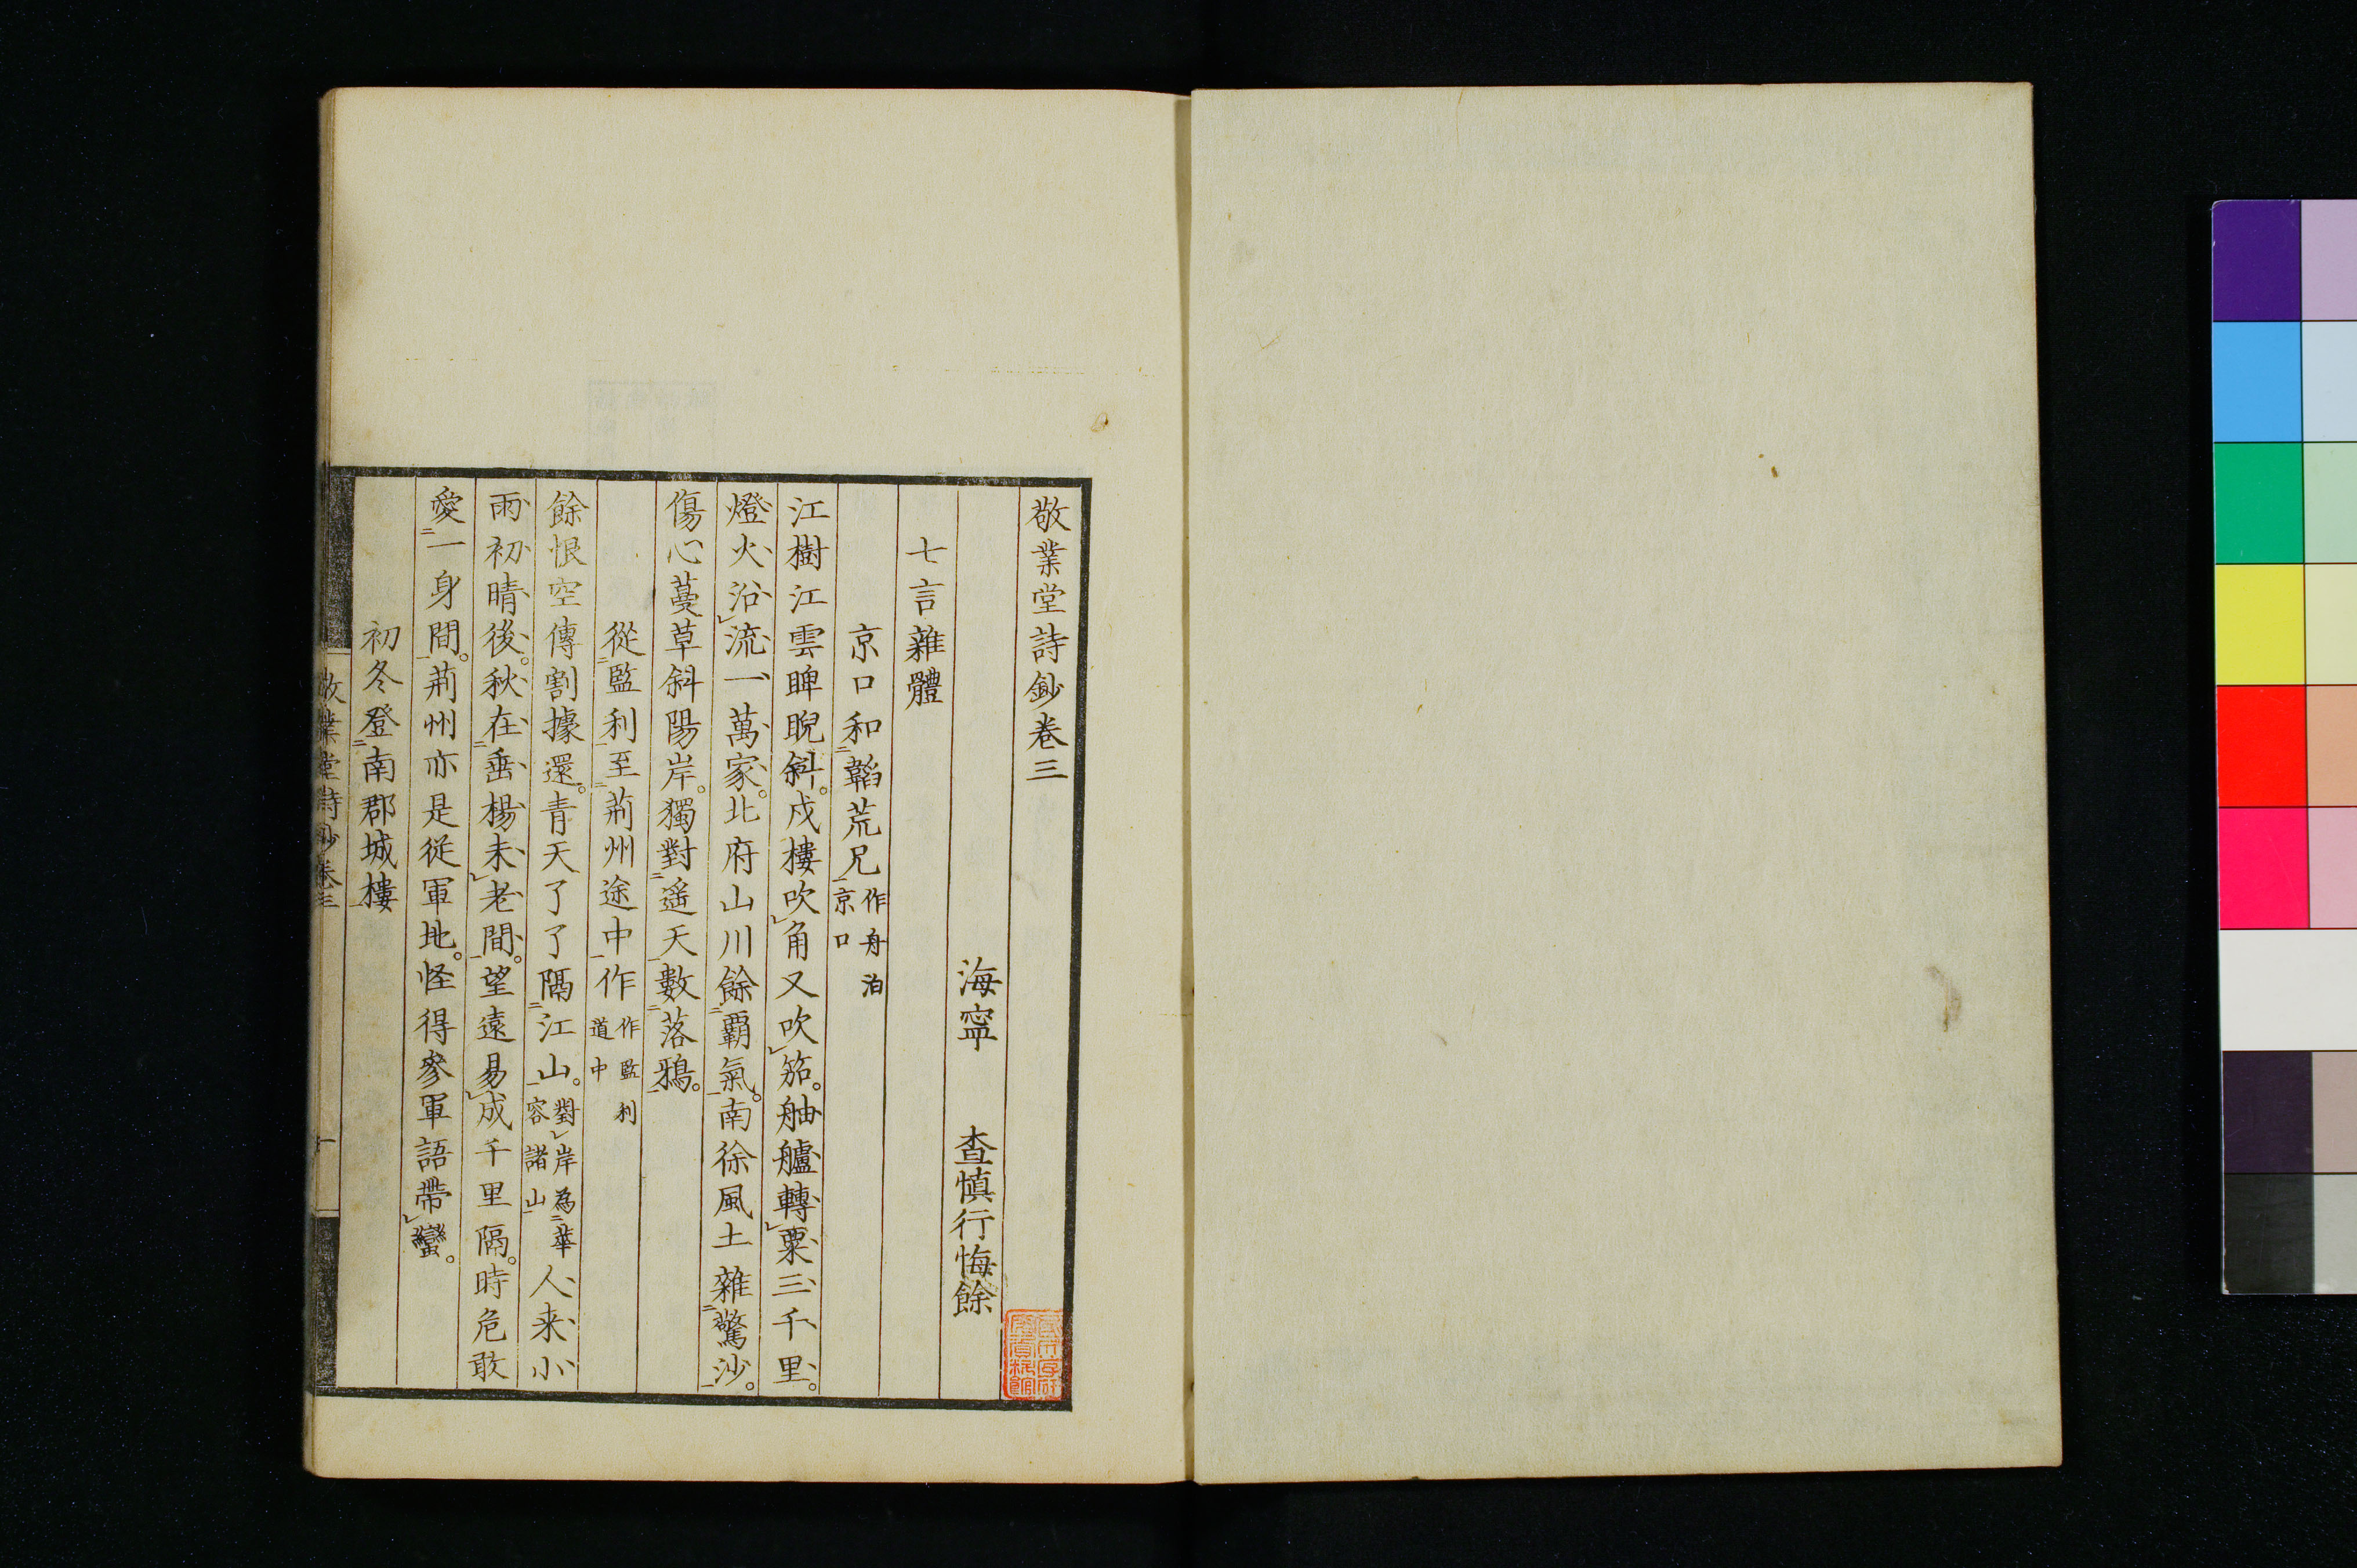 敬業堂詩鈔卷三
海寧　查慎行悔餘
七言雜體
京口和韜荒兄作舟泊京口
江樹江雲睥睨斜。戍樓吹角又吹笳。舳艫轉粟三千里。
燈火沿流一萬家。北府山川餘霸氣。南徐風土雜驚沙。
傷心蔓草斜陽岸。獨對遥天數落鴉。
從監利至荊州途中作作監利道中
餘恨空傳割據還。青天了了隔江山。對岸為華容諸山人来小
雨初晴後。秋在垂楊未老間。望遠易成千里隔。時危敢
愛一身間。荊州亦是従軍地。怪得參軍語帶蠻。
初冬登南郡城樓
敬業堂詩鈔卷三
一